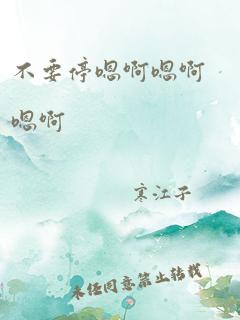 不要停嗯啊嗯啊
嗯啊
寒江子
未经同意禁止转载